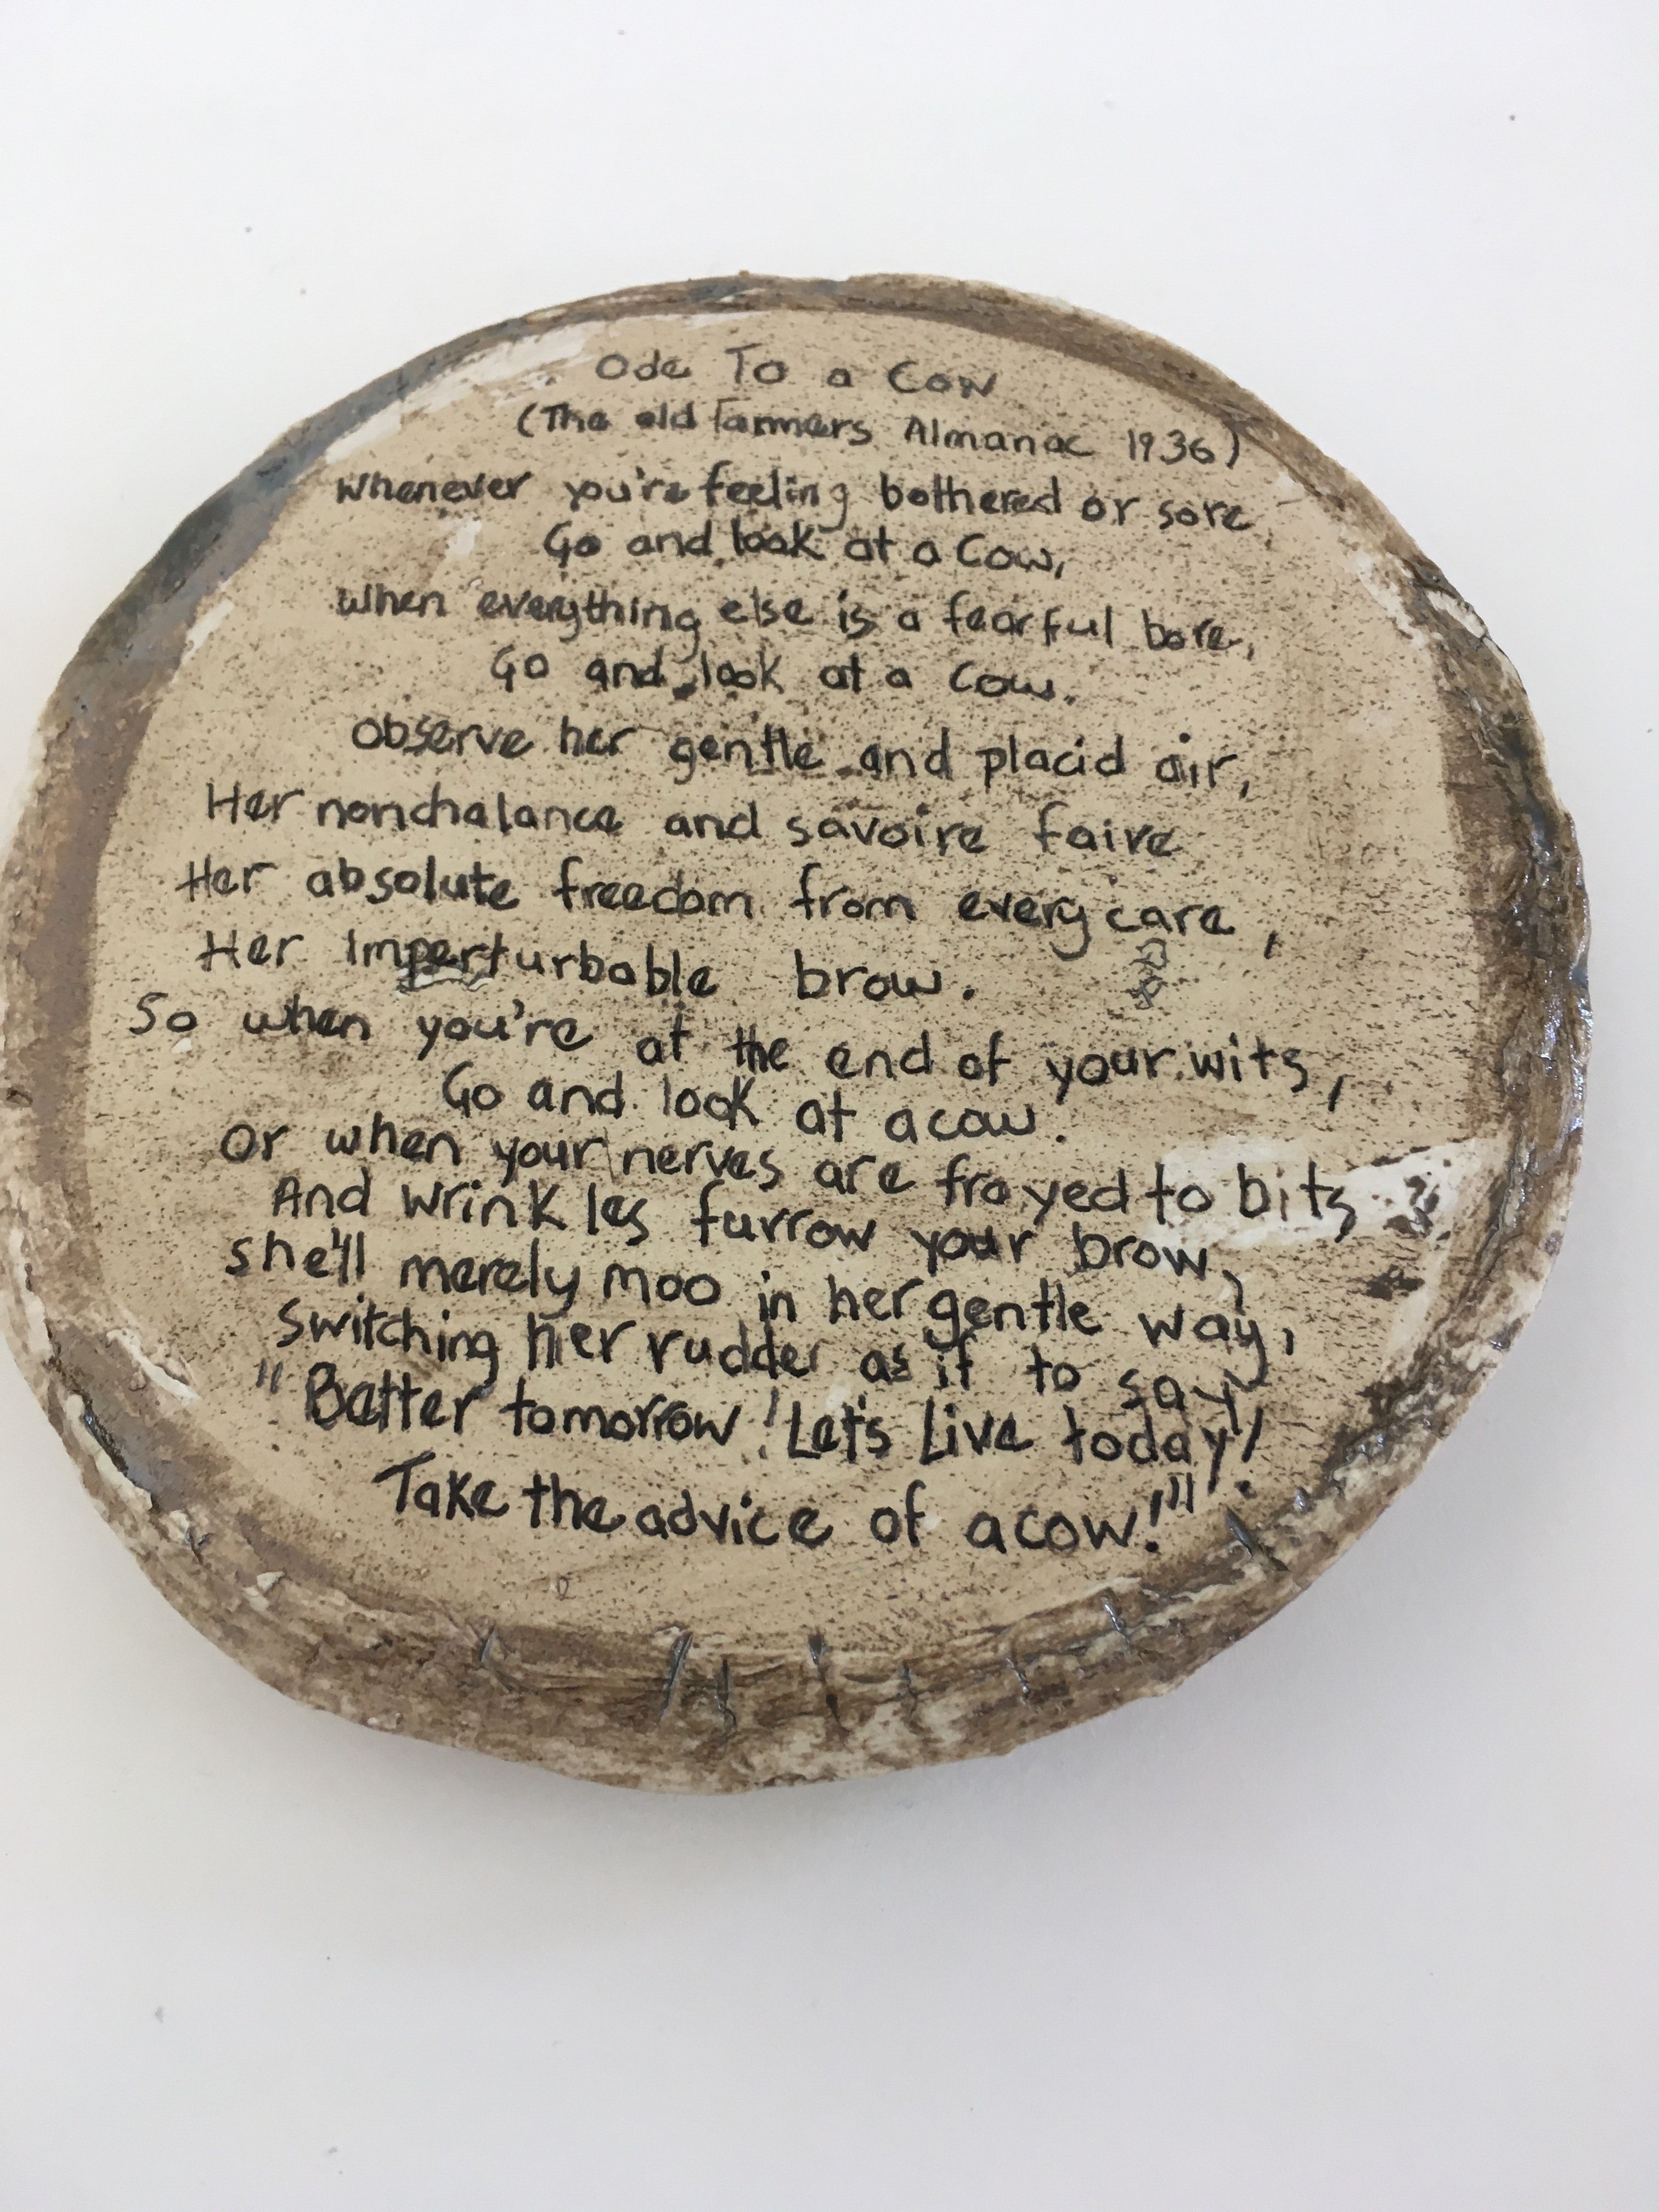 Ode To a Cow
(The old Farmers Almanac 1936)
Whenever you're feeling bothered or sore
Go and look at a Cow,
When everything else is a fearful bore,
Go and look at a Cow.
Observe her gentle and placid air,
Her nonchalance and savoire faire
Her absolute freedom from every care,
Her Imperturbable brow.
So when you're at the end of your wits,
Go and look at a cow.
Or when your nerves are frayed to bits
And wrinkles furrow your brow,
she'll merely moo in her gentle way,
Switching her rudder as if to say
"Better tomorrow! Let's Live today!
Take the advice of a cow!"